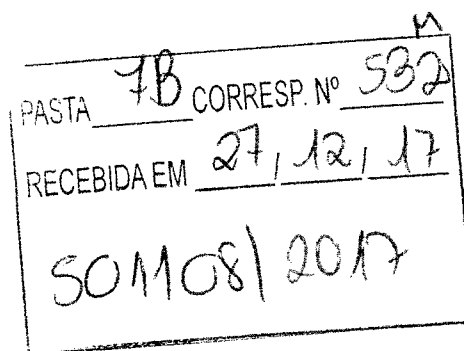 M
PASTA 7B CORRESP. Nº 532
RECEBIDA EM 27, 12, 17
501108/2017